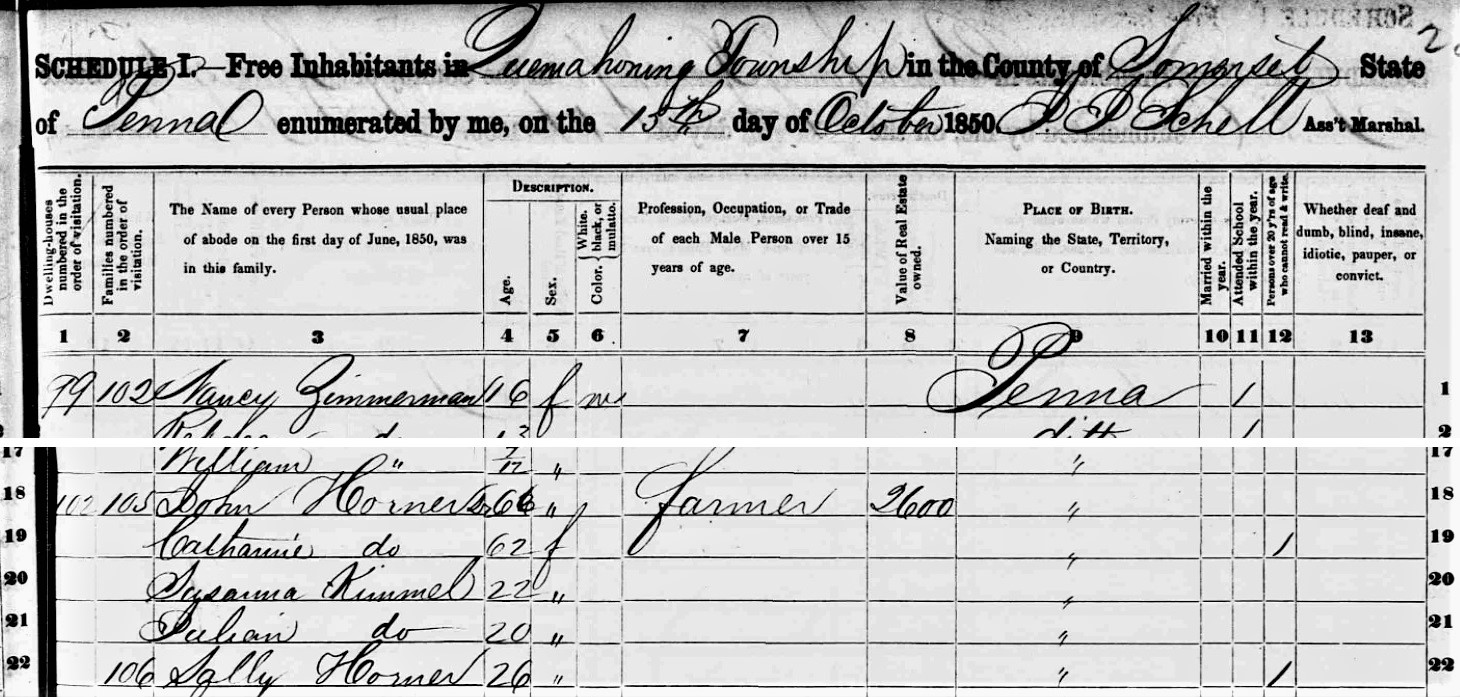 SCHEDULE I.—Free Inhabitants in Quemahoning Township in the County of Somerset State
of Penna enumerated by me, on the 15th day of October 1850. Schell Ass't Marshal.
Dwelling-houses numbered in the order of visitation.
Families numbered in the order of visitation.
The Name of every Person whose usual place of abode on the first day of June, 1850, was in this family.
DESCRIPTION.
Age.
Sex.
Color. { White, black, or mulatto.
Profession, Occupation, or Trade of each Male Person over 15 years of age.
Value of Real Estate owned.
PLACE OF BIRTH. Naming the State, Territory, or Country.
Married within the year.
Attended School within the year.
Persons over 20 y'rs of age who cannot read & write.
Whether deaf and dumb, blind, insane, idiotic, pauper, or convict.
1 2 3 4 5 6 7 8 9 10 11 12 13
99 102 Nancy Zimmerman 16 f w Penna 1 1
2
17 William " 7/12 " " 17
18 102 105 John Horner Sr 66 " farmer 2600 " 18
19 Catharine do 62 f " 1 19
20 Susanna Kimmel 22 " " 20
21 Julian do 20 " " 21
22 106 Sally Horner 26 " " 1 22